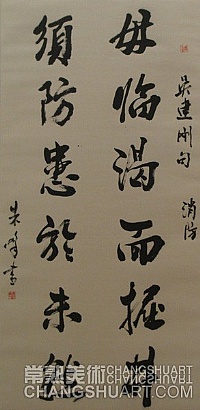 吴建刚句 消防
毋临渴而掘井
须防患於未然
朱峰书
常熟美術
CHANGSHUART
CHANGSHUART.COM